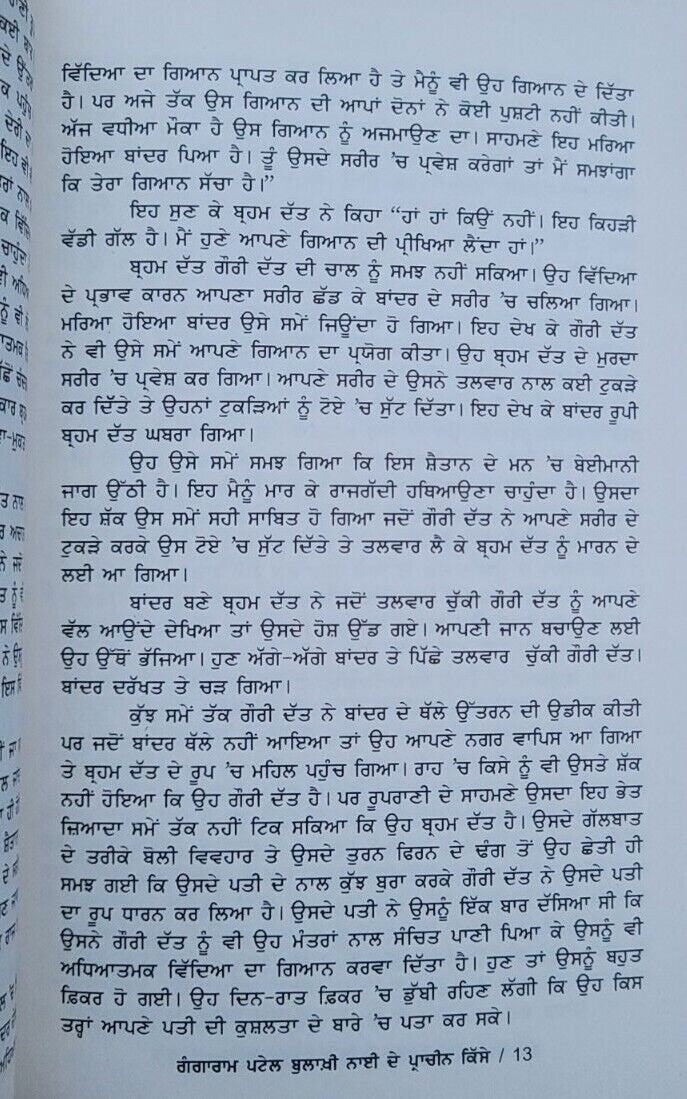 ਵਿੱਦਿਆ ਦਾ ਗਿਆਨ ਪ੍ਰਾਪਤ ਕਰ ਲਿਆ ਹੈ ਤੇ ਮੈਨੂੰ ਵੀ ਉਹ ਗਿਆਨ ਦੇ ਦਿੱਤਾ
ਹੈ। ਪਰ ਅਜੇ ਤੱਕ ਉਸ ਗਿਆਨ ਦੀ ਆਪਾਂ ਦੋਨਾਂ ਨੇ ਕੋਈ ਪੁਸ਼ਟੀ ਨਹੀਂ ਕੀਤੀ।
ਅੱਜ ਵਧੀਆ ਮੌਕਾ ਹੈ ਉਸ ਗਿਆਨ ਨੂੰ ਅਜਮਾਉਣ ਦਾ। ਸਾਹਮਣੇ ਇਹ ਮਰਿਆ
ਹੋਇਆ ਬਾਂਦਰ ਪਿਆ ਹੈ। ਤੂੰ ਉਸਦੇ ਸਰੀਰ ’ਚ ਪ੍ਰਵੇਸ਼ ਕਰੇਗਾਂ ਤਾਂ ਮੈਂ ਸਮਝਾਂਗਾ
ਕਿ ਤੇਰਾ ਗਿਆਨ ਸੱਚਾ ਹੈ।”
ਇਹ ਸੁਣ ਕੇ ਬ੍ਰਹਮ ਦੱਤ ਨੇ ਕਿਹਾ “ਹਾਂ ਹਾਂ ਕਿਉਂ ਨਹੀਂ। ਇਹ ਕਿਹੜੀ
ਵੱਡੀ ਗੱਲ ਹੈ। ਮੈਂ ਹੁਣੇ ਆਪਣੇ ਗਿਆਨ ਦੀ ਪ੍ਰੀਖਿਆ ਲੈਂਦਾ ਹਾਂ।”
ਬ੍ਰਹਮ ਦੱਤ ਗੌਰੀ ਦੱਤ ਦੀ ਚਾਲ ਨੂੰ ਸਮਝ ਨਹੀਂ ਸਕਿਆ। ਉਹ ਵਿੱਦਿਆ
ਦੇ ਪ੍ਰਭਾਵ ਕਾਰਨ ਆਪਣਾ ਸਰੀਰ ਛੱਡ ਕੇ ਬਾਂਦਰ ਦੇ ਸਰੀਰ ’ਚ ਚਲਿਆ ਗਿਆ।
ਮਰਿਆ ਹੋਇਆ ਬਾਂਦਰ ਉਸੇ ਸਮੇਂ ਜਿਊਂਦਾ ਹੋ ਗਿਆ। ਇਹ ਦੇਖ ਕੇ ਗੌਰੀ ਦੱਤ
ਨੇ ਵੀ ਉਸੇ ਸਮੇਂ ਆਪਣੇ ਗਿਆਨ ਦਾ ਪ੍ਰਯੋਗ ਕੀਤਾ। ਉਹ ਬ੍ਰਹਮ ਦੱਤ ਦੇ ਮੁਰਦਾ
ਸਰੀਰ ’ਚ ਪ੍ਰਵੇਸ਼ ਕਰ ਗਿਆ। ਆਪਣੇ ਸਰੀਰ ਦੇ ਉਸਨੇ ਤਲਵਾਰ ਨਾਲ ਕਈ ਟੁਕੜੇ
ਕਰ ਦਿੱਤੇ ਤੇ ਉਹਨਾਂ ਟੁਕੜਿਆਂ ਨੂੰ ਟੋਏ ’ਚ ਸੁੱਟ ਦਿੱਤਾ। ਇਹ ਦੇਖ ਕੇ ਬਾਂਦਰ ਰੂਪੀ
ਬ੍ਰਹਮ ਦੱਤ ਘਬਰਾ ਗਿਆ।
ਉਹ ਉਸੇ ਸਮੇਂ ਸਮਝ ਗਿਆ ਕਿ ਇਸ ਸ਼ੈਤਾਨ ਦੇ ਮਨ ’ਚ ਬੇਈਮਾਨੀ
ਜਾਗ ਉੱਠੀ ਹੈ। ਇਹ ਮੈਨੂੰ ਮਾਰ ਕੇ ਰਾਜਗੱਦੀ ਹਥਿਆਉਣਾ ਚਾਹੁੰਦਾ ਹੈ। ਉਸਦਾ
ਇਹ ਸ਼ੱਕ ਉਸ ਸਮੇਂ ਸਹੀ ਸਾਬਿਤ ਹੋ ਗਿਆ ਜਦੋਂ ਗੌਰੀ ਦੱਤ ਨੇ ਆਪਣੇ ਸਰੀਰ ਦੇ
ਟੁਕੜੇ ਕਰਕੇ ਉਸ ਟੋਏ ’ਚ ਸੁੱਟ ਦਿੱਤੇ ਤੇ ਤਲਵਾਰ ਲੈ ਕੇ ਬ੍ਰਹਮ ਦੱਤ ਨੂੰ ਮਾਰਨ ਦੇ
ਲਈ ਆ ਗਿਆ।
ਬਾਂਦਰ ਬਣੇ ਬ੍ਰਹਮ ਦੱਤ ਨੇ ਜਦੋਂ ਤਲਵਾਰ ਚੁੱਕੀ ਗੌਰੀ ਦੱਤ ਨੂੰ ਆਪਣੇ
ਵੱਲ ਆਉਂਦੇ ਦੇਖਿਆ ਤਾਂ ਉਸਦੇ ਹੋਸ਼ ਉੱਡ ਗਏ। ਆਪਣੀ ਜਾਨ ਬਚਾਉਣ ਲਈ
ਉਹ ਉੱਥੋਂ ਭੱਜਿਆ। ਹੁਣ ਅੱਗੇ-ਅੱਗੇ ਬਾਂਦਰ ਤੇ ਪਿੱਛੇ ਤਲਵਾਰ ਚੁੱਕੀ ਗੌਰੀ ਦੱਤ।
ਬਾਂਦਰ ਦਰੱਖਤ ਤੇ ਚੜ ਗਿਆ।
ਕੁੱਝ ਸਮੇਂ ਤੱਕ ਗੌਰੀ ਦੱਤ ਨੇ ਬਾਂਦਰ ਦੇ ਥੱਲੇ ਉੱਤਰਨ ਦੀ ਉਡੀਕ ਕੀਤੀ
ਪਰ ਜਦੋਂ ਬਾਂਦਰ ਥੱਲੇ ਨਹੀਂ ਆਇਆ ਤਾਂ ਉਹ ਆਪਣੇ ਨਗਰ ਵਾਪਿਸ ਆ ਗਿਆ
ਤੇ ਬ੍ਰਹਮ ਦੱਤ ਦੇ ਰੂਪ ’ਚ ਮਹਿਲ ਪਹੁੰਚ ਗਿਆ। ਰਾਹ ’ਚ ਕਿਸੇ ਨੂੰ ਵੀ ਉਸਤੇ ਸ਼ੱਕ
ਨਹੀਂ ਹੋਇਆ ਕਿ ਉਹ ਗੌਰੀ ਦੱਤ ਹੈ। ਪਰ ਰੂਪਰਾਣੀ ਦੇ ਸਾਹਮਣੇ ਉਸਦਾ ਇਹ ਭੇਤ
ਜ਼ਿਆਦਾ ਸਮੇਂ ਤੱਕ ਨਹੀਂ ਟਿਕ ਸਕਿਆ ਕਿ ਉਹ ਬ੍ਰਹਮ ਦੱਤ ਹੈ। ਉਸਦੇ ਗੱਲਬਾਤ
ਦੇ ਤਰੀਕੇ ਬੋਲੀ ਵਿਵਹਾਰ ਤੇ ਉਸਦੇ ਤੁਰਨ ਫਿਰਨ ਦੇ ਢੰਗ ਤੋਂ ਉਹ ਛੇਤੀ ਹੀ
ਸਮਝ ਗਈ ਕਿ ਉਸਦੇ ਪਤੀ ਦੇ ਨਾਲ ਕੁੱਝ ਬੁਰਾ ਕਰਕੇ ਗੌਰੀ ਦੱਤ ਨੇ ਉਸਦੇ ਪਤੀ
ਦਾ ਰੂਪ ਧਾਰਨ ਕਰ ਲਿਆ ਹੈ। ਉਸਦੇ ਪਤੀ ਨੇ ਉਸਨੂੰ ਇੱਕ ਬਾਰ ਦੱਸਿਆ ਸੀ ਕਿ
ਉਸਨੇ ਗੌਰੀ ਦੱਤ ਨੂੰ ਵੀ ਉਹ ਮੰਤਰਾਂ ਨਾਲ ਸੰਚਿਤ ਪਾਣੀ ਪਿਆ ਕੇ ਉਸਨੂੰ ਵੀ
ਅਧਿਆਤਮਕ ਵਿੱਦਿਆ ਦਾ ਗਿਆਨ ਕਰਵਾ ਦਿੱਤਾ ਹੈ। ਹੁਣ ਤਾਂ ਉਸਨੂੰ ਬਹੁਤ
ਫ਼ਿਕਰ ਹੋ ਗਈ। ਉਹ ਦਿਨ-ਰਾਤ ਫ਼ਿਕਰ ’ਚ ਡੁੱਬੀ ਰਹਿਣ ਲੱਗੀ ਕਿ ਉਹ ਕਿਸ
ਤਰ੍ਹਾਂ ਆਪਣੇ ਪਤੀ ਦੀ ਕੁਸ਼ਲਤਾ ਦੇ ਬਾਰੇ ’ਚ ਪਤਾ ਕਰ ਸਕੇ।
ਗੰਗਾਰਾਮ ਪਟੇਲ ਬੁਲਾਖ਼ੀ ਨਾਈ ਦੇ ਪ੍ਰਾਚੀਨ ਕਿੱਸੇ / 13